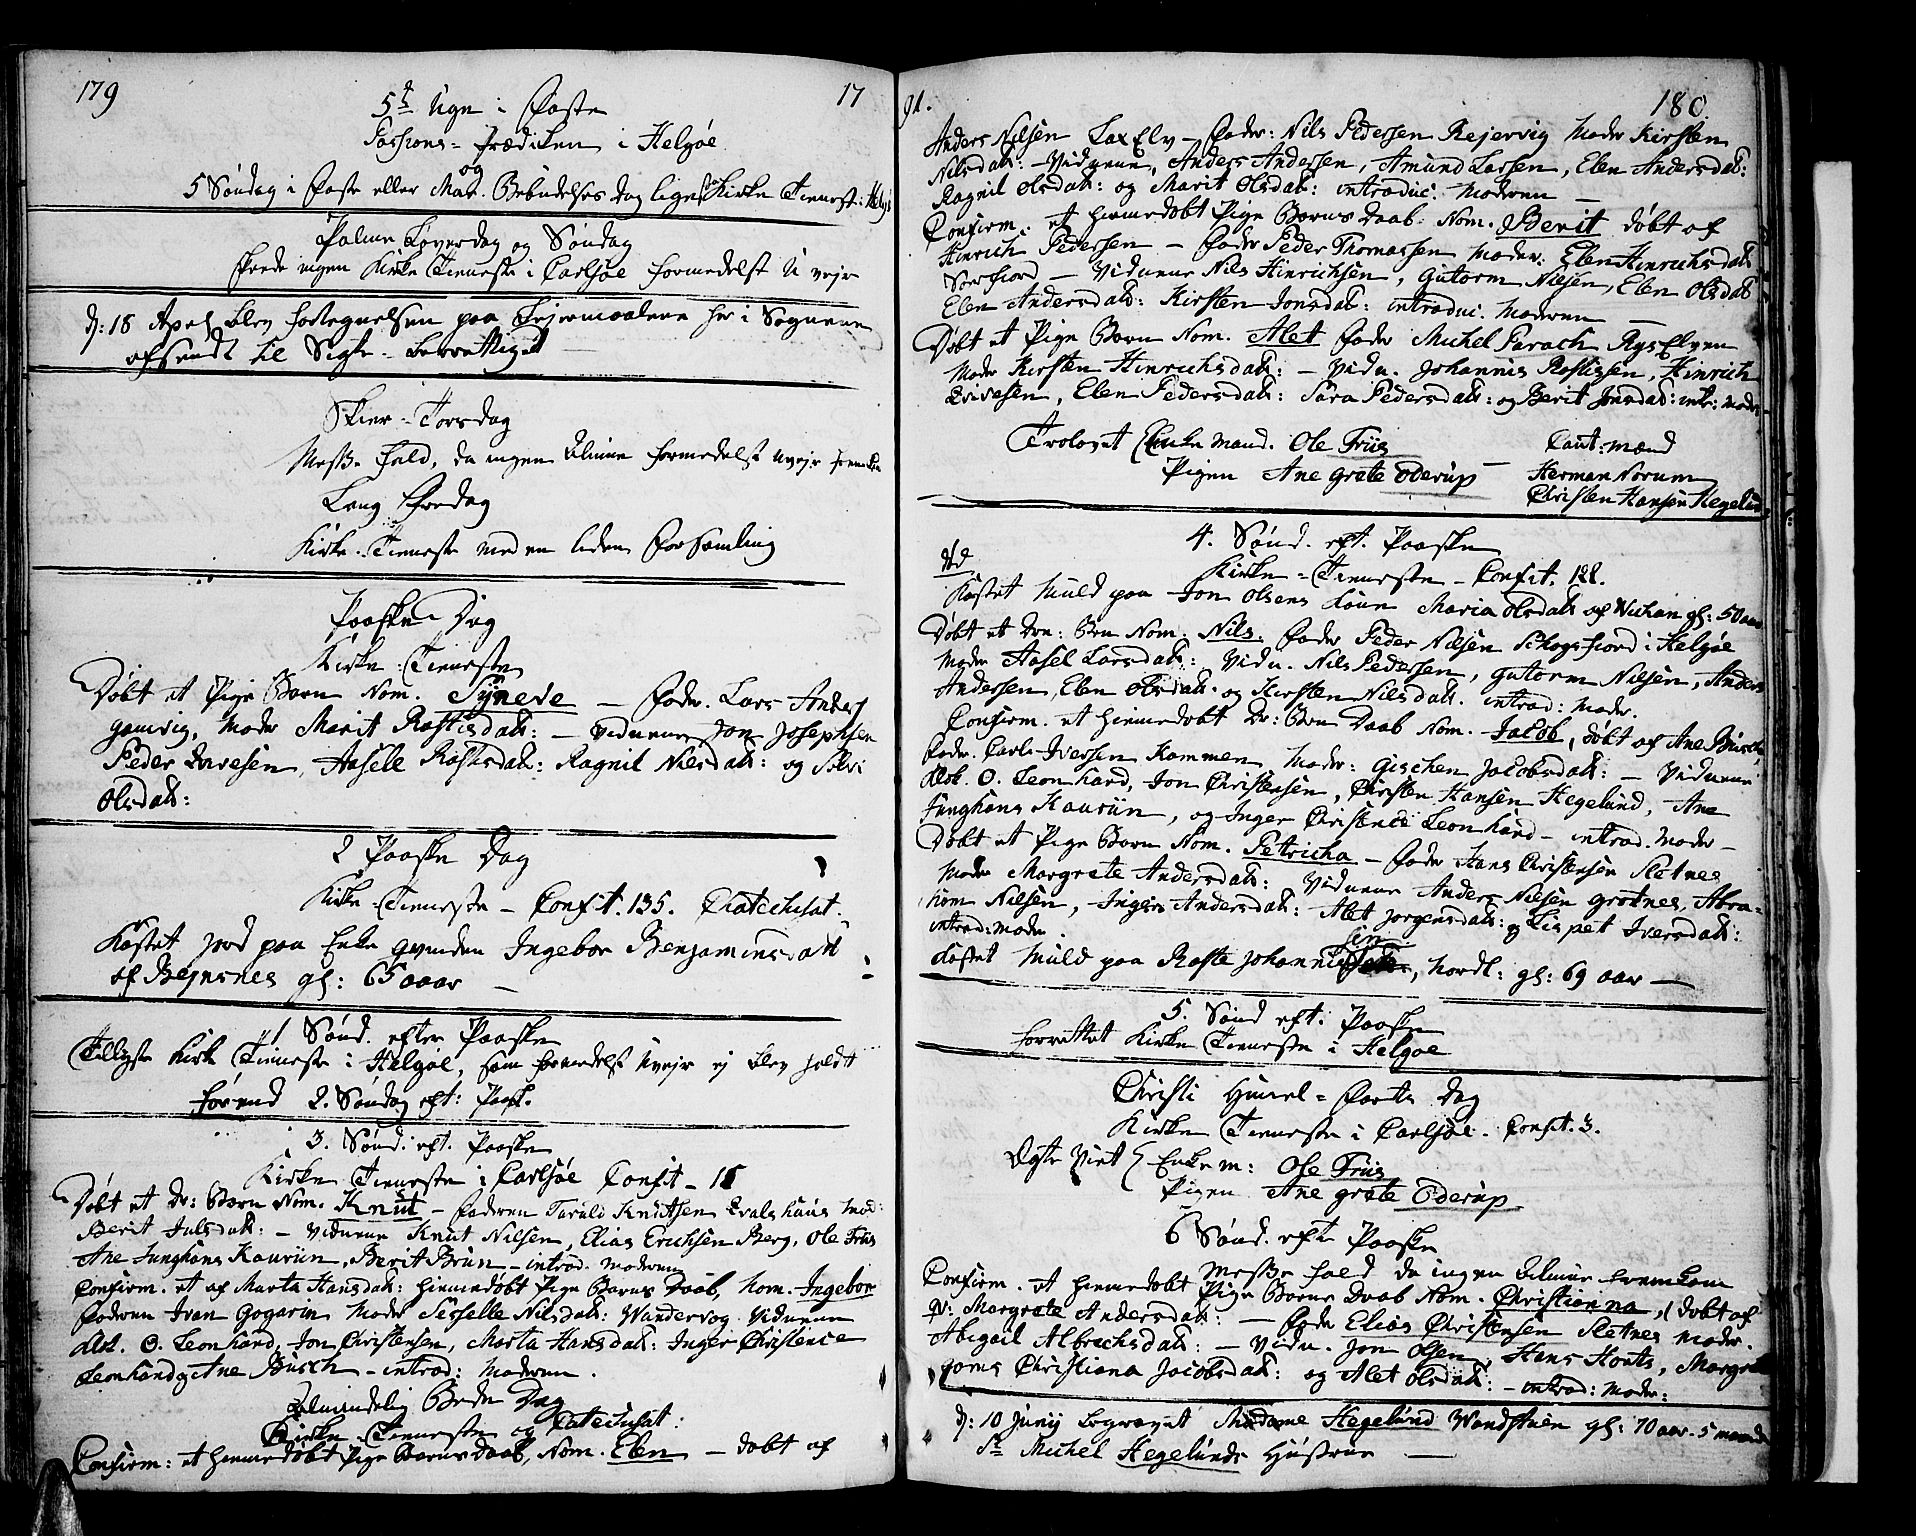 179
17
5te Uge i Faste
Passions-Prædiken i Helgøe
og
5 Søndag i Faste eller Mar. Bebudelses Dag ligesaa Kirke Tieneste: Helg:
Palme Løverdag og Søndag
skeede ingen Kirke Tieneste i Carlsøe formedelst U vejr
d: 18 Apr: blev fortegnelsen paa Lejermaalene her i Sognene
afsendt til
Skier-Torsdag
Messe fald, da ingen Almue formedelst Uvejr
Lang Fredag
Kirke-Tieneste med en liden Forsamling
Paaske Dag
Kirke-Tieneste
Døbt et Pige Barn Nom. Syneve - Fader. Lars Anders:
gamvig, Moder Marit Rastisdatt: - Vidnerne Jon Josephsen
Peder Iversen, Aselle Rastisdatt: Ragnil Nilsdatt: og Silvi
Olsdatt:
2 Paaske Dag
Kirke-Tieneste - Confit. 135. Catechisat.
Kastet Jord paa Enke qvinden Ingebor Benjaminsdatt
af Bejnsnes gl: 65 aar -
1 Sønd. efter Paaske
Tillyst Kirke Tieneste i Helgøe, som formedelst Uvejr ej blev holdt
førend 2. Søndag eft: Paask.
3. Sønd. eft. Paaske
Kirke Tieneste i Carlsøe Confit -
Døbt et Dr: Barn Nom. Knut - Faderen Tarald Knudtsen Hvalshaus Mod:
Berit Julsdatt: - Vidnerne Knut Nilsen, Elias Erichsen Berg, Ole Friis
Ane Junghans Kauriin, Berit Brun - introd. Moderen
Confirm. et af Marta Hansdatt: hiemmedøbt Pige Barns Daab, Nom. Ingebor
Faderen Ivan Gogarin Moder Sesselle Nilsdatt: Wandervog. Vidnerne
Klok. O. Leonhard, Jon Christensen, Marta Hansdatt: Inger Christence
Leonhard og Ane Busch - introd: Moderen.
Almindelig Bede Dag
Kirke-Tieneste og Catechisat:
Confirm: et hiemmedøbt Pige Barns Daab, Nom. Elen - døbt af
91.
180
Anders Nilsen LaxElv - Fader: Nils Pedersen Rejervig Moder Kirsten
Nilsdatt: - Vidnerne, Anders Andersen, Amund Larsen, Elen Andersdatt:
Ragnil Olsdatt: og Marit Olsdatt: introduc. Moderen -
Confirm. et hiemmedøbt Pige Barns Daab: Nom. Berit døbt af
Hinrich Pedersen - Fader Peder Thomassen Moder: Elen Hinrichsdatt
Sørfiord - Vidnerne Nils Hinrichsen, Gutorm Nilsen, Elen Olsdatt
Elen Andersdatt: Kirsten Jonsdatt: introduc. Moderen -
Døbt et Pige Barn Nom. Alet Fader Michel Parach RysElven
Moder Kirsten Hinrichsdatt: - Vidn. Johannis Rastissen, Hinrich
Iversen, Elen Pedersdatt: Sara Pedersdatt: og Berit Jonsdatt: intr: Moder
Troloved Enke Mand. Ole Friis
Caut: Mænd
Pigen Ane Grete Oderup
Herman Norum
Christen Hansen Hegelund
4. Sønd. eft. Paaske
Kirke-Tieneste - Confit. 122.
Kastet Muld paa Jon Olsens Kone Maria Olsdatt af gl: 50 aar
Døbt et Dre: Brn Nom: Nils. Fader Peder Nilsen Schogsfiord i Helgøe
Moder Aasel Larsdatt: Vidn. Nils Pedersen, Gutorm Nilsen, Anders
Andersen, Elen Olsdatt. og Kirsten Nilsdatt. introd: Moder.
Confirm. et hiemmedøbt Dr: Brn Daab Nom. Jacob, døbt af Ane Busch,
Fader. Carl Iversen Kammen Moder: Gischen Jacobsdatt: - Vidnerne
Klok. O. Leonhard, Jon Christensen, Christen Hansen Hegelund, Ane
Junghans Kauriin, og Inger Christence Leonhard - introd. Moder -
Døbt et Pige Barn Nom. Petricha - Fader Hans Christensen Sletnes
Moder Margrete Andersdatt: Vidnerne Anders Nilsen grøtnes, Abra-
ham Nilsen, Inger Andersdatt: Alet Jørgensdatt: og Lispet Iversdatt:
introd: Moder.
sen
Kastet Muld paa Raste Johannis, Nordl: gl: 69 aar -
5. Sønd eft: Paaske
Forrettet Kirke Tieneste i Helgøe
Christi Himmel-Farts Dag
Kirke Tieneste i Carlsøe. Confit. 3.
Egte Viet Enke m: Ole Friis
Pigen Ane grete Oderup
6 Sønd. efte Paaske
Messe fald da ingen Almue fremkom
Confirm. et hiemmedøbt Pige Barns Daab Nom. Christianna, (døbt af
qv: Margrete Andersdatt: - Fader Elias Christensen Sletnes Moder.
Abigail Albrechsdatt: - Vidn. Jon Olsen, Hans Houts, Margret
Joms Christiana Jacobsdatt: og Alet Olsdatt: - introd: Moder:
d: 10 Junij begravet Madame Hegelund Wandstuen gl: 70 aar. 5 maand
Sr Michel Hegelunds Hustrue -